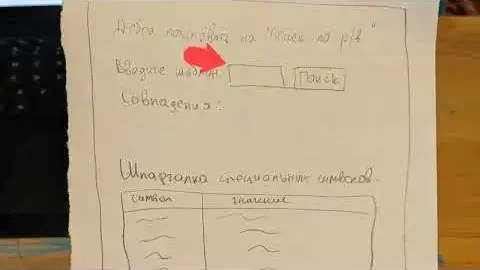 Добро пожаловать на "Поиск по р/в"
Введите шаблон Поиск
Совпадения:
Шпаргалка специальных символов.
символ значение